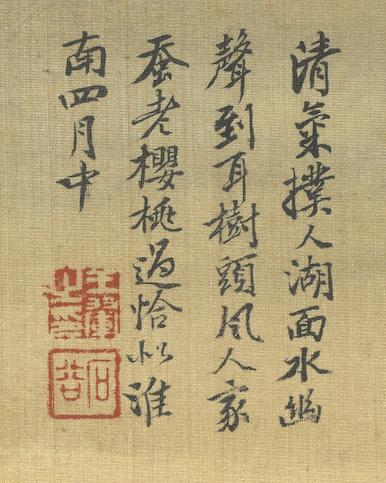 清氣撲人湖面水幽
聲到耳樹頭風人家
蚕老櫻桃過恰似淮
南四月中
王翬之印
石谷